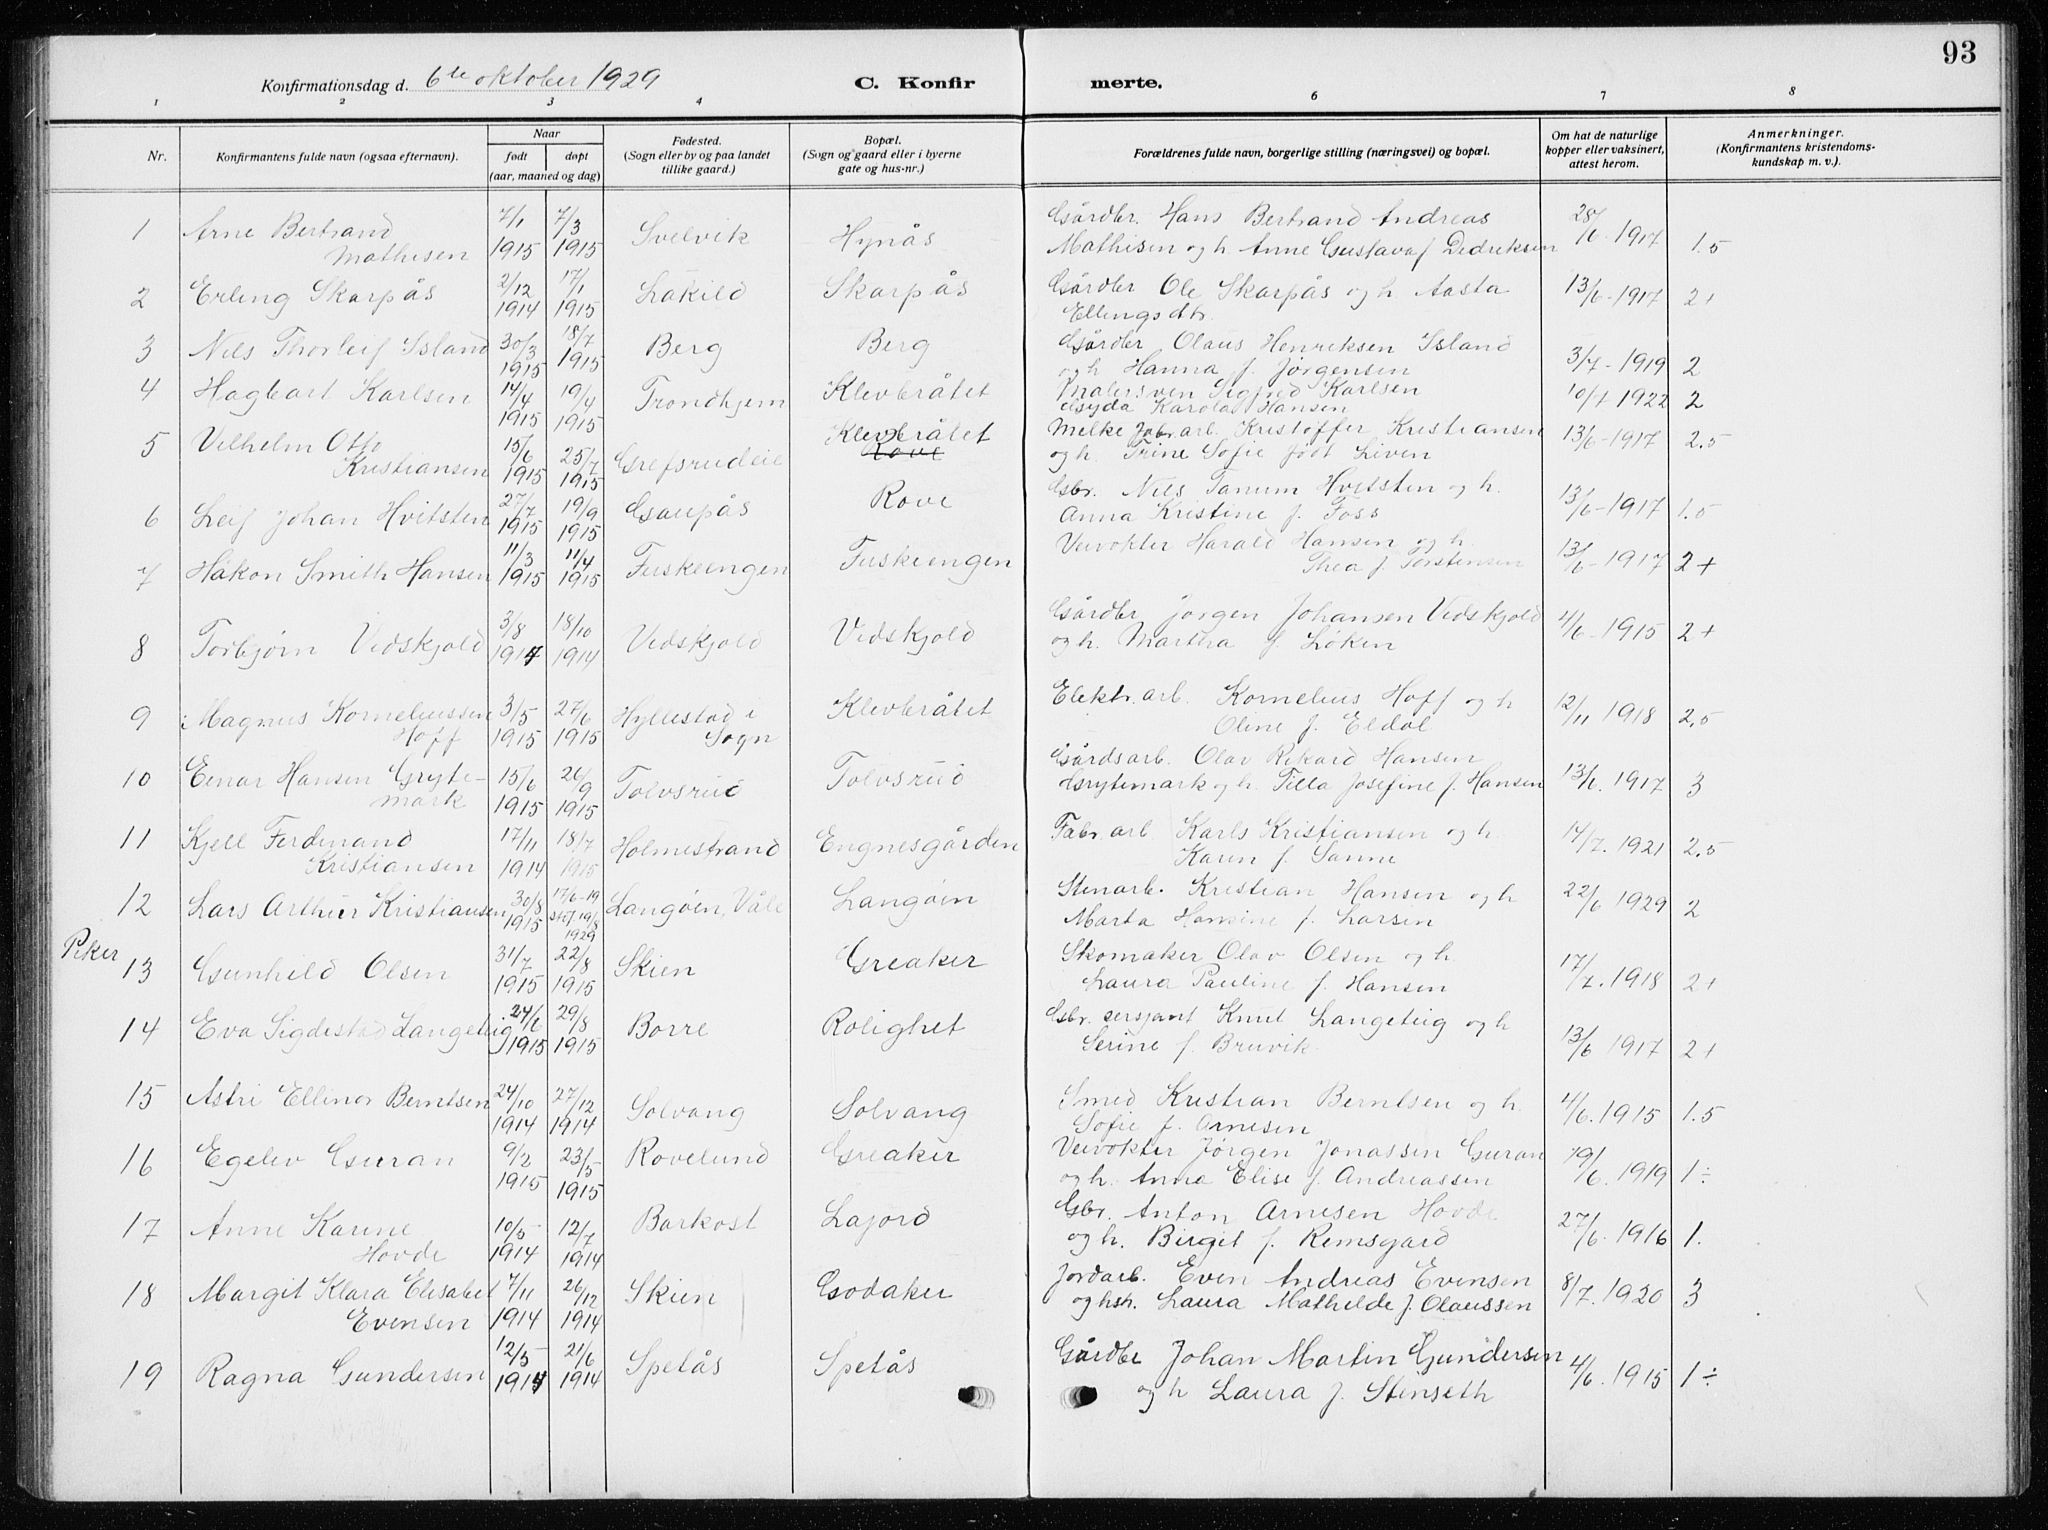 93
Konfirmationsdag d. 6te oktober 1929 C. Konfir merte.
1 2 3 4 5 6 7 8
Nr. Konfirmantens fulde navn (ogsaa efternavn). Naar født døpt (aar, maaned og dag) Fødested. (Sogn eller by og paa landet tillike gaard.) Bopæl. (Sogn og gaard eller i byerne gate og hus-nr.) Forældrenes fulde navn, borgerlige stilling (næringsvei) og bopæl. Om hat de naturlige kopper eller vaksinert, attest herom. Anmerkninger. (Konfirmantens kristendoms-kundskap m. v.).
1 Arne Bertrand Mathisen 7/1 1915 7/3 1915 Svelvik Hynås Gårdbr. Hans Bertrand Andreas Mathisen og h Anne Gustava f Didriksen 28/6-1917 1.5
2 Erling Skarpås 2/12 1914 17/1 1915 Løkild Skarpås Gårdbr Ole Skarpås og h Aasta Ellingsdtr. 13/6-1917 2+
3 Nils Thorleif Island 30/3 1915 18/7 1915 Berg Berg Gårdbr Olaus Henriksen Island og h Hanna f. Jørgensen 3/7-1919 2
4 Hagbart Karlsen 14/4 1915 19/4 1915 Trondhjem Klevbråtet Malersven Sigfred Karlsen Gyda Karola Hansen 10/7 1922 2
5 Vilhelm Otto Kristiansen 15/6 1915 25/7 1915 Grefsrudeie Klevbråtet Rove Melke fabr.arb. Kristoffer Kristiansen og h. Trine Sofie født Liven 13/6-1917 2.5
6 Leif Johan Hvitsten 27/7 1915 19/9 1915 Gaupås Rove Gbr. Nils Tanum Hvitsten og h. Anna Kristine f. Foss 13/6-1917 1.5
7 Håkon Smith Hansen 11/3 1915 11/4 1915 Fuskeengen Fuskeengen Veivokter Harald Hansen og h. Thea f. Torstensen 13/6-1917 2+
8 Torbjørn Vidskjold 3/8 1914 18/10 1914 Vidskjold Vidskjold Gårdbr Jørgen Johansen Vidskjold og h. Martha f. Løken 4/6-1915 2+
9 Magnus Korneliussen Hoff 3/5 1915 27/6 1915 Hyllestad i Sogn Klevbråtet Elektr. arb. Kornelius Hoff og h Oline f. Eldøl 12/11 1918 2.5
10 Einar Hansen Gryte-mark 15/6 1915 26/9 1915 Tolvsrud Tolvsrud Gårdsarb. Olav Rikard Hansen Grytemark og h. Tilla Josefine f. Hansen 13/6. 1917 3
11 Kjell Ferdinand Kristiansen 17/11 1914 18/7 1915 Holmestrand Engnesgården Fabr. arb. Karls Kristiansen og h. Karen f. Sanne 14/7. 1921 2.5
12 Lars Arthur Kristiansen 30/8 1915 17/6-19 stf. 19/8 1929 Langøin, Våle Langøin Stenarb. Kristian Hansen og h Marta Hansine f. Larsen 22/6 1929 2
Piker
13 Gunhild Olsen 31/7 1915 22/8 1915 Skien Greaker Skomaker Olav Olsen og h. Laura Pauline f. Hansen 17/7. 1918 2+
14 Eva Sigdestad Langeteig 24/6 1915 29/8 1915 Borre Rolighet Gbr. sersjant Knut Langeteig og h Serine f. Bruvik 13/6 1917 2+
15 Astri Ellinor Berntsen 24/10 1914 27/12 1914 Solvang Solvang Smed Kristian Berntsen og h. Sofie f. Arnesen 4/6. 1915 1.5
16 Egelev Guran 9/2 1915 23/5 1915 Rovelund Greaker Veivokter Jørgen Jonassen Guran og h. Anna Elise f. Andreassen 19/6. 1919 1÷
17 Anne Karine Hovde 10/5 1914 12/7 1914 Barkost Lajord Gbr. Anton Arnesen Hovde og h. Birgit f. Remsgard 27/6. 1916 1.
18 Margit Klara Elisabet Evensen 7/11 1914 26/12 1914 Skien Godaker Jordarb. Even Andreas Evensen og hsh. Laura Mathilde f. Olaussen 8/7. 1920 3
19 Ragna Gundersen 12/5 1914 21/6 1914 Spetås Spetås Gårdbr Johan Martin Gundersen og h Laura f. Stenseth 4/6. 1915 1÷